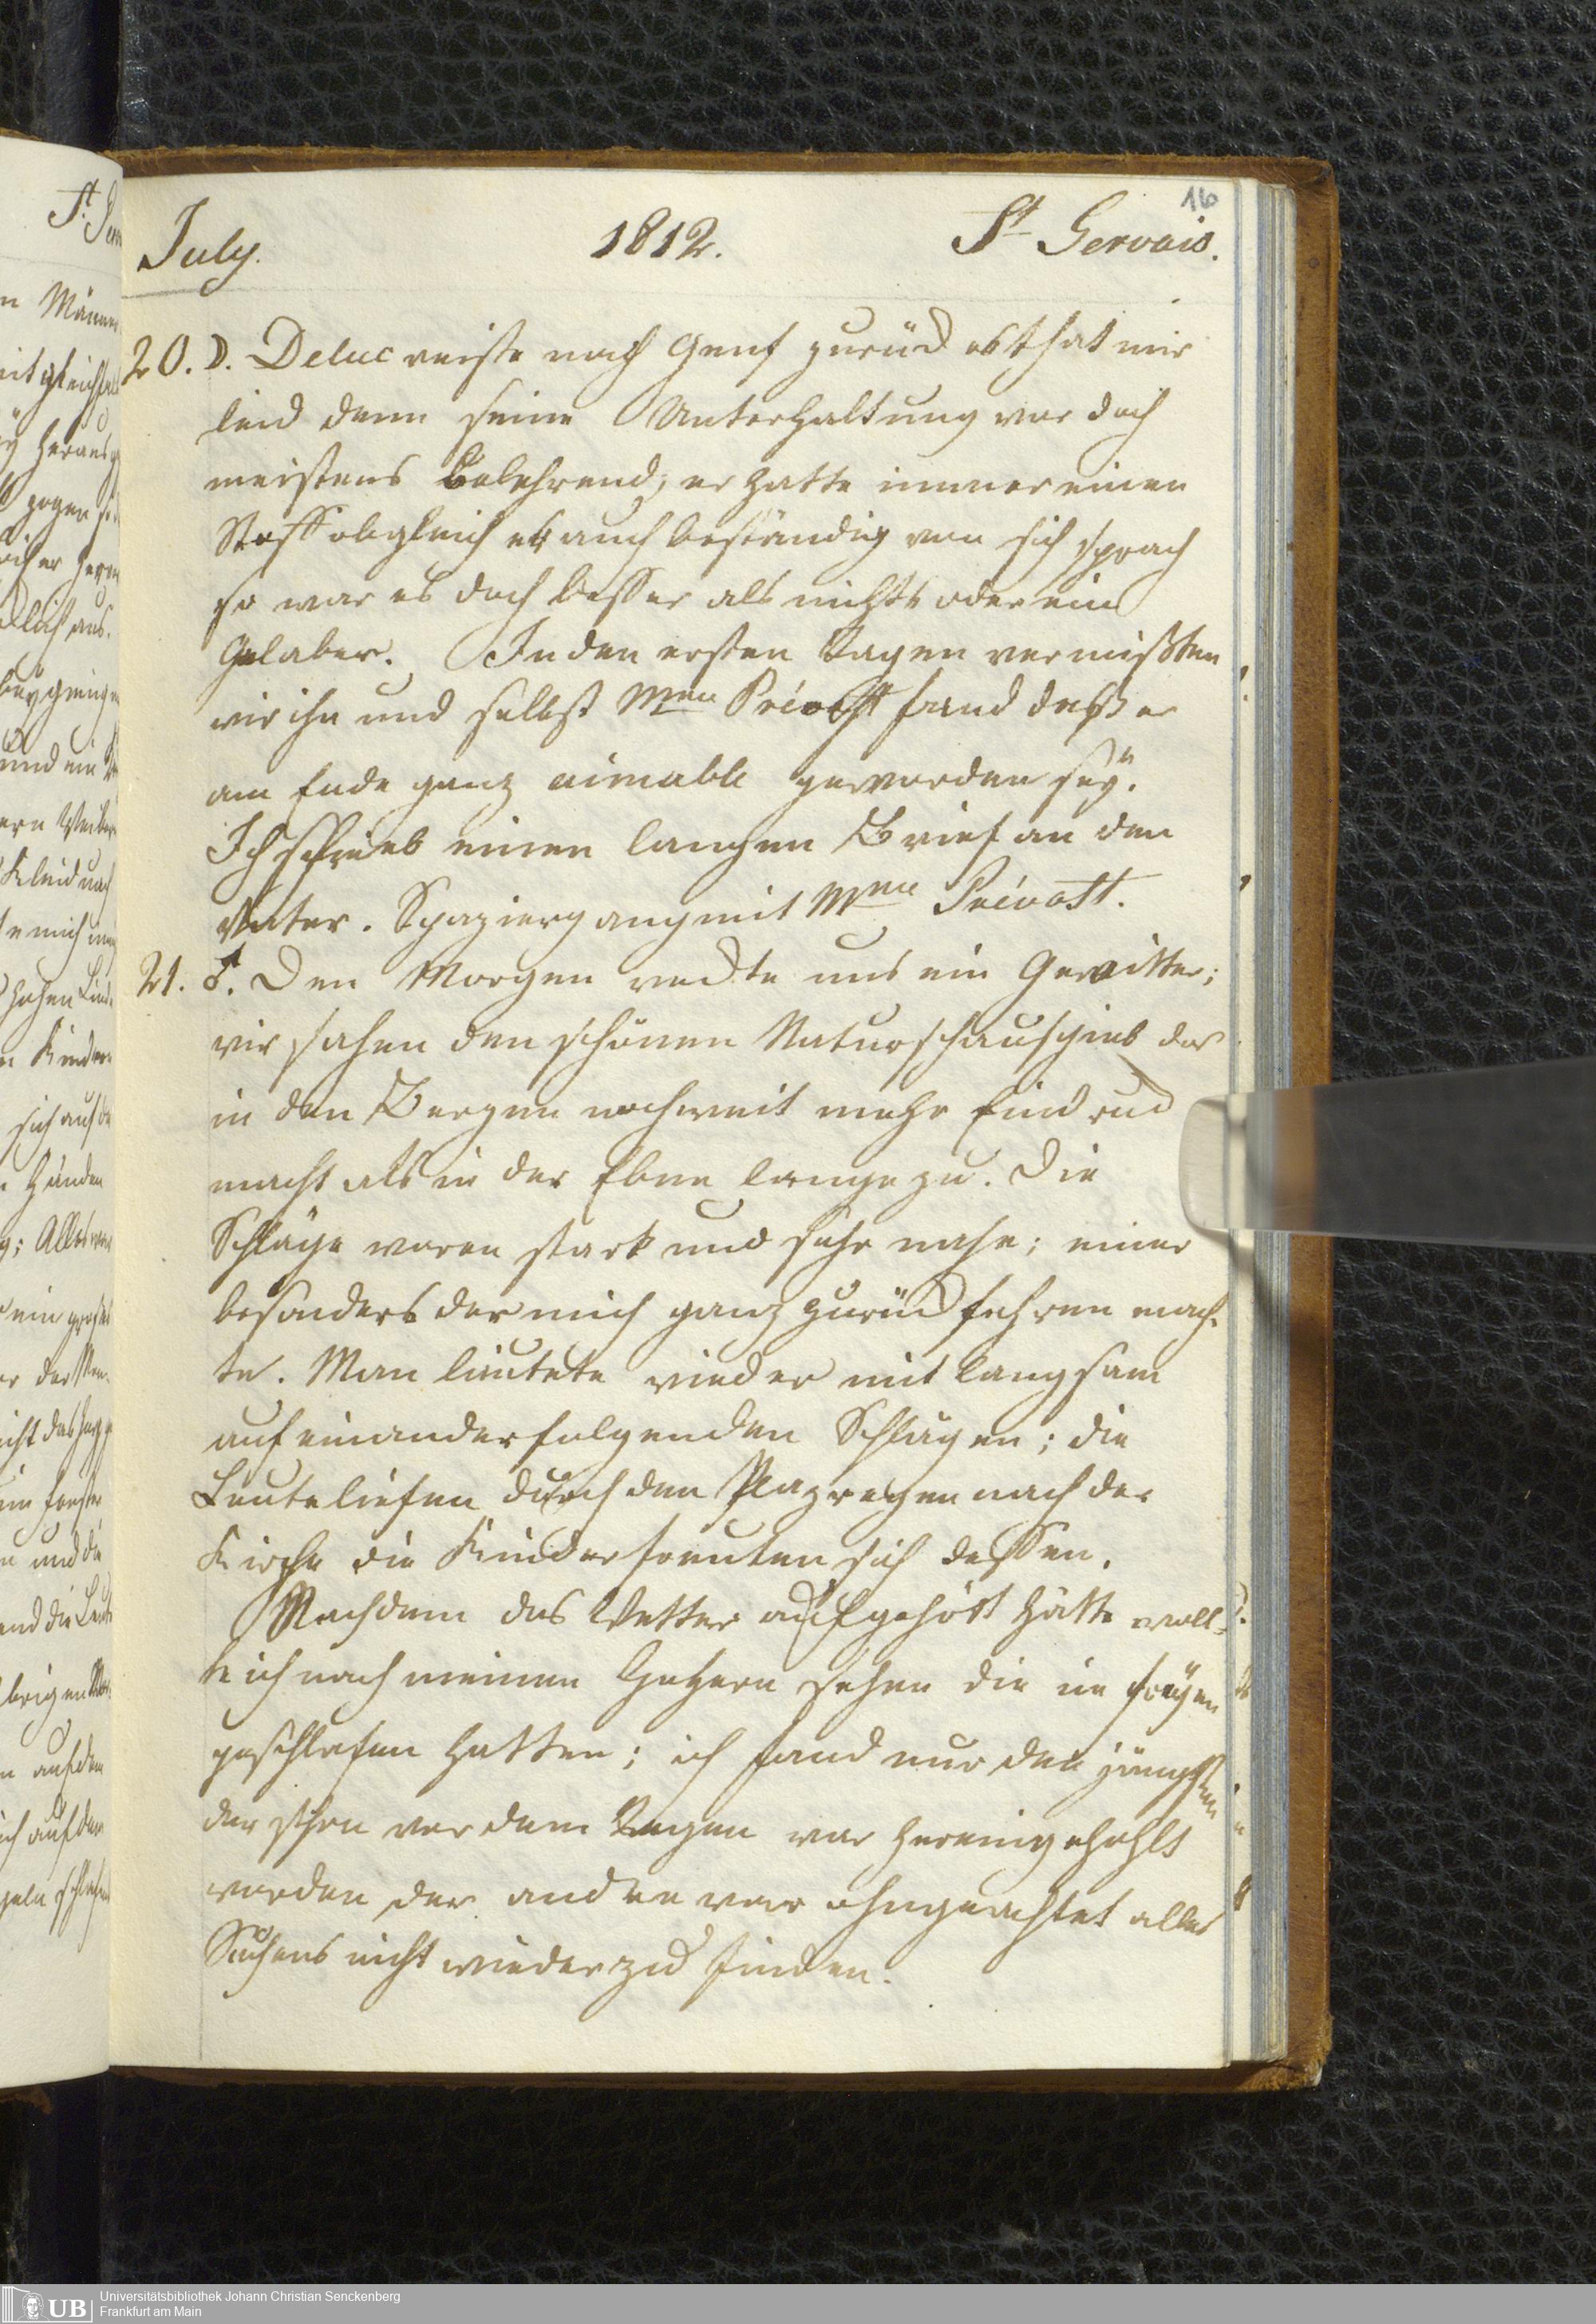 16
July. 1812. St Gervais.
20. ☽. Deluc reiste nach Genf zurück es that mir
leid denn seine Unterhaltung war doch
meistens belehrend; er hatte immer einen
Stoff obgleich er auch beständig von sich sprach
so war es doch besser als nichts oder ein
Gelaber. In den ersten Tagen vermißten
wir ihn und selbst Mme Prévost fand daß er
am Ende ganz aimable geworden sey.
Ich schrieb einen langen Brief an den
Vater. Spaziergang mit Mme Prévost.
21. ♂. Den Morgen weckte uns ein Gewitter;
wir sahen den schönen Naturschauspiel das
in den Bergen noch weit mehr Eindruck
macht als in der Ebne lange zu. Die
Schläge waren stark und sehr nahe; einer
besonders der mich ganz zurück fahren mach-
te. Man läutete wieder mit langsam
auf einander folgenden Schlägen; die
Leute liefen durch den Plazregen nach der
Kirche die Kinder freuten sich dessen.
Nachdem das Wetter aufgehört hatte woll-
te ich nach meinen sehen die im freÿen
geschlafen hatten; ich fand nur den jüngsten
der schon vor dem Regen war hereingehohlt
worden der andre war ohngeachtet alles
Suchens nicht wieder zu finden.
UB Universitätsbibliothek Johann Christian Senckenberg
Frankfurt am Main